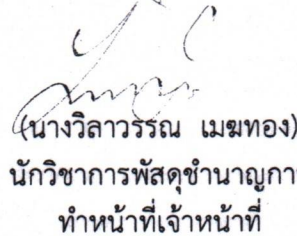 (นางวิลาวรรณ เมฆทอง)
นักวิชาการพัสดุชำนาญกา
ทำหน้าที่เจ้าหน้าที่